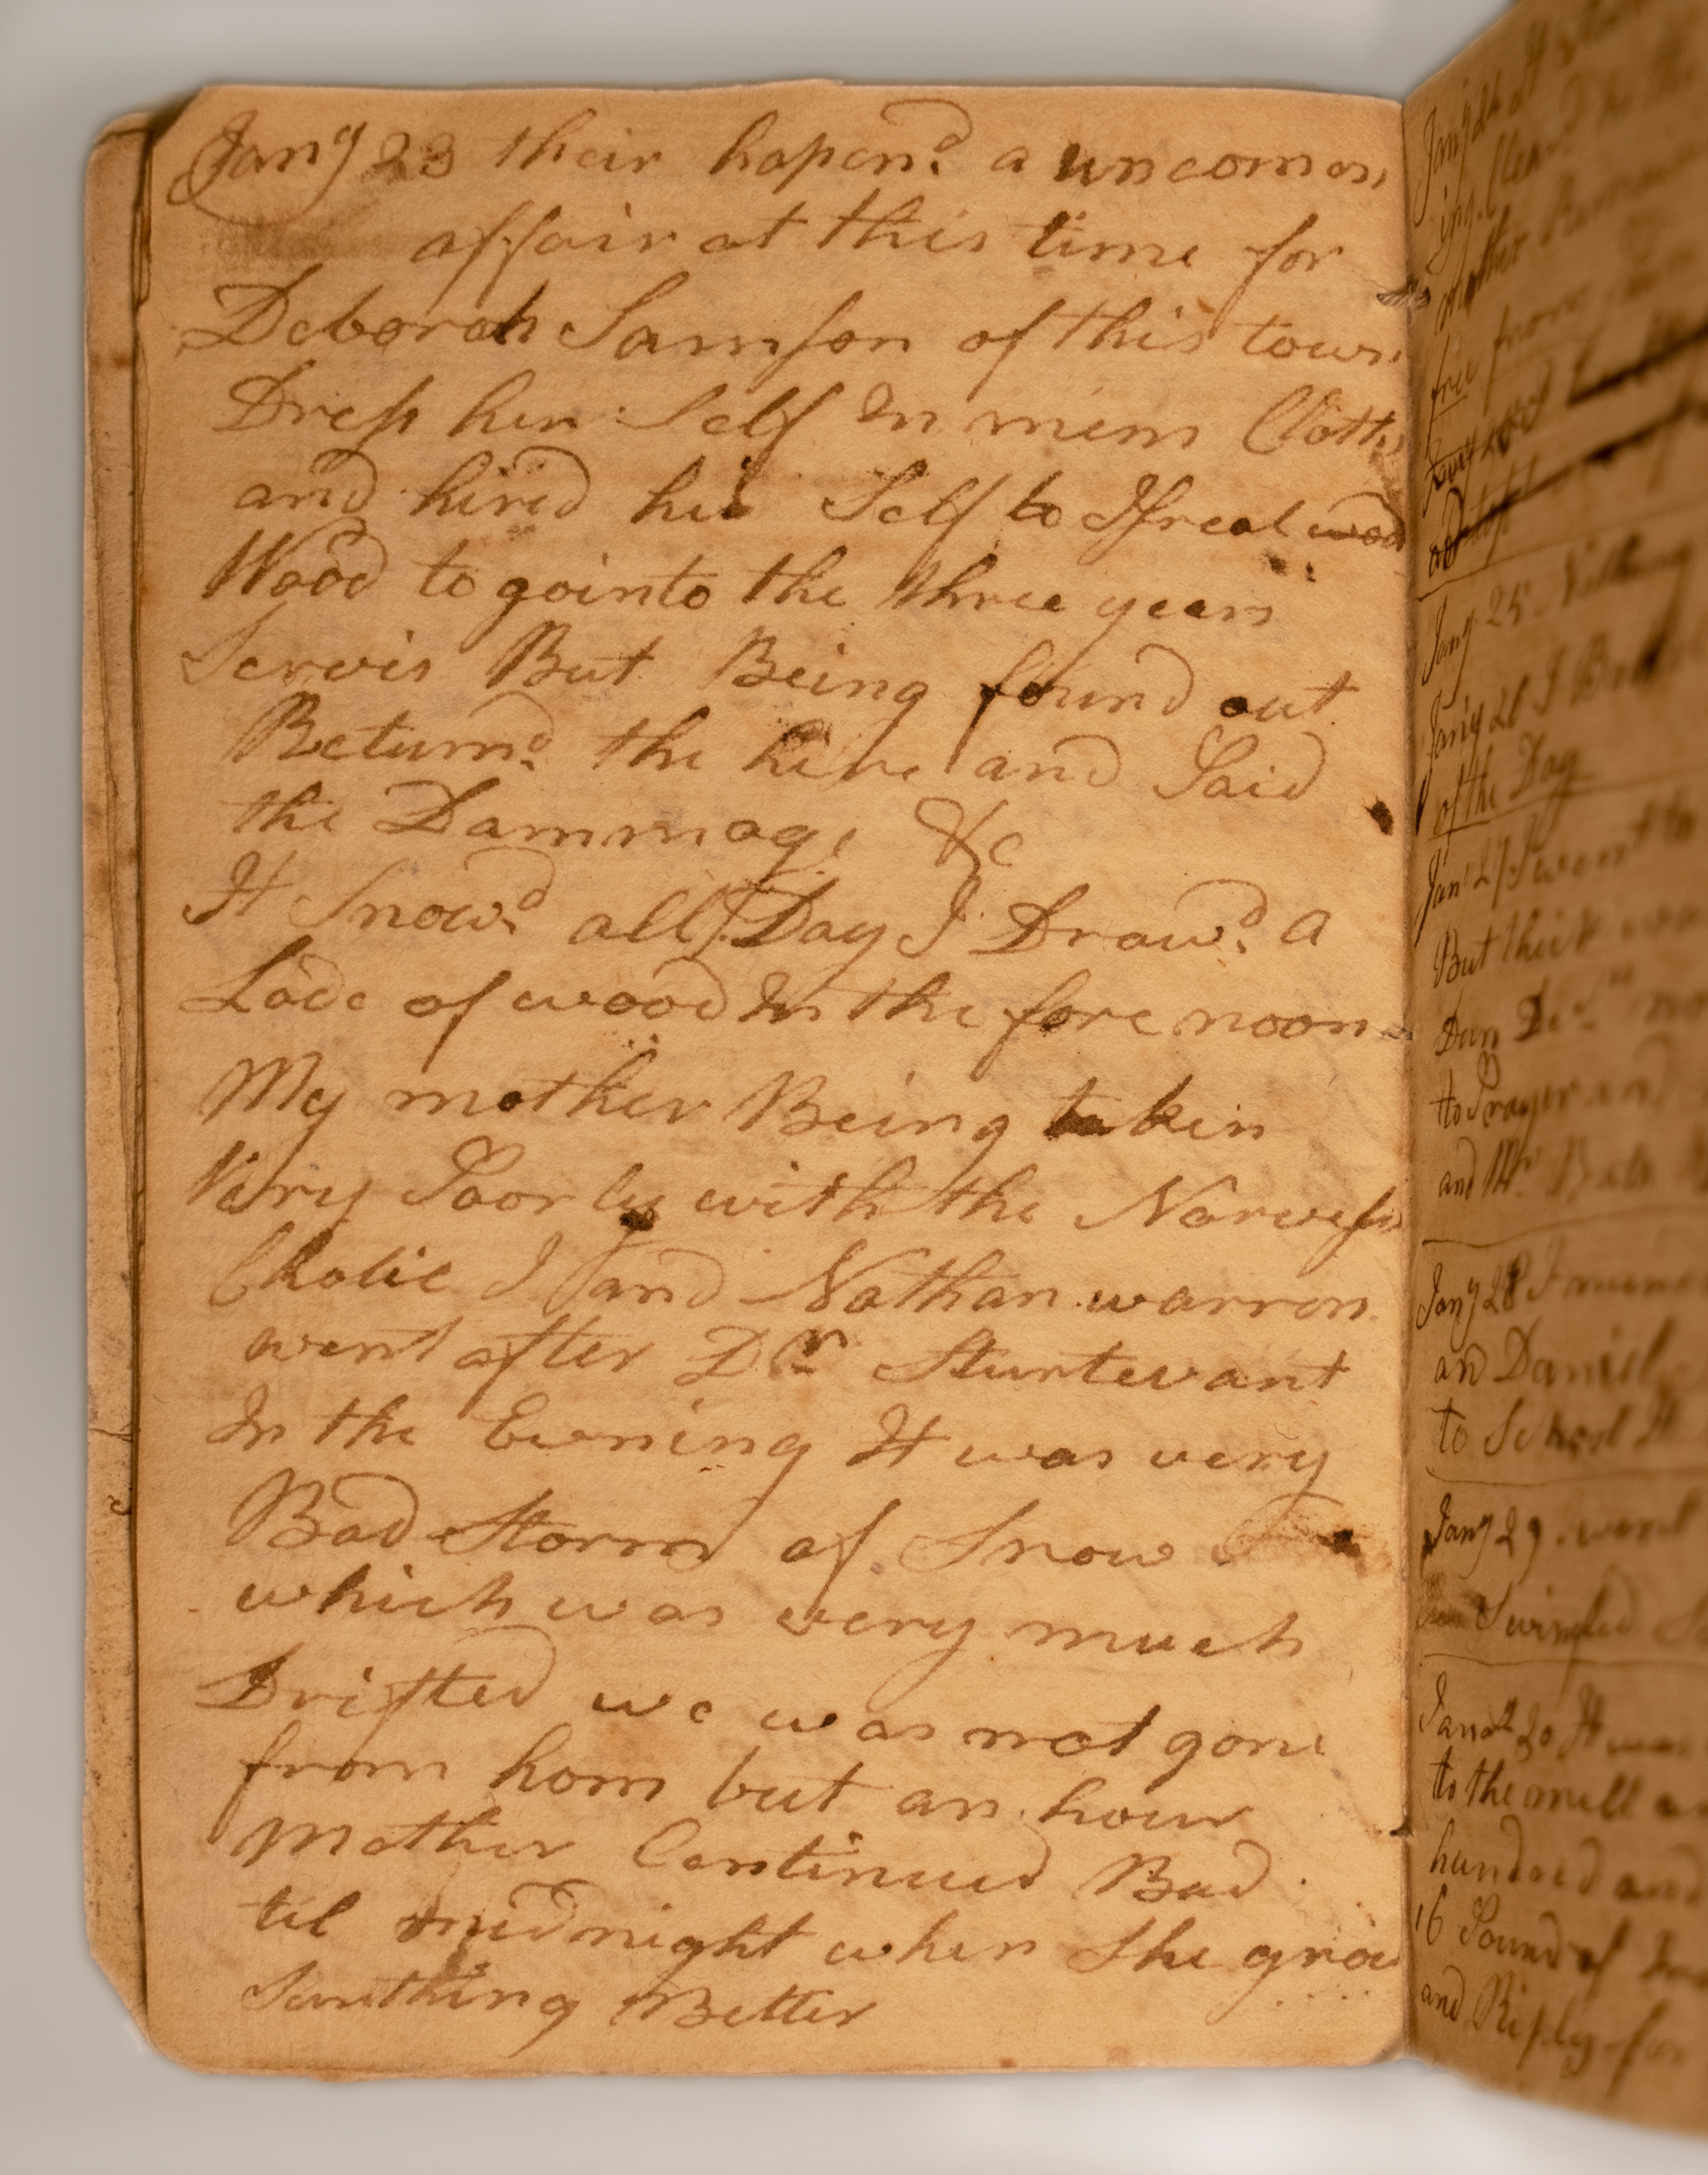 Jany 23 their hapend a uncomon
affair at this time for
Deborah Samson of this town
Dress her Self in mens Cloths
and hired her Self to Israel wood
Wood to go into the three years
Servis But Being found out
Returnd the hire and Paid
the Dammage &c
It Snowd all Day I Drawd a
Lode of wood In the fore noon
My mother Being taken
Very Poorly with the Norvess
Cholic I and Nathan warren
went after Dr Sturtevant
In the Evening It was very
Bad Storm of Snow
which was very much
Drifted we was not gone
from hom but an hour
Mother Continued Bad
til midnight when She grow
Somthing Better
Jany 24 It
ing Clear
free from
Jany 25 Nothing
Jany 26 I
of the Day
Jany 27 I went to
But thick
Dan
to Prayer and
and Mr
Jany 28 I
an Daniel
to School It
Jany 29 went
Swingled
30 It was
to the mill
hundred and
16 Pound of
and Ripley for